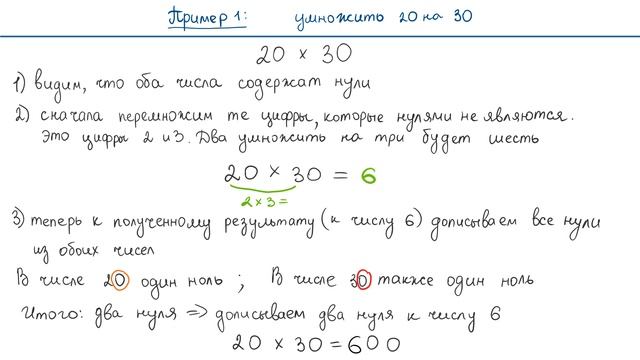 Пример 1: умножить 20 на 30
20 × 30
1) видим, что оба числа содержат нули
2) сначала перемножим те цифры, которые нулями не являются.
Это цифры 2 и 3. Два умножить на три будет шесть
20 × 30 = 6
2 × 3 =
3) теперь к полученному результату (к числу 6) дописываем все нули
из обоих чисел
В числе 20 один ноль ; В числе 30 также один ноль
Итого: два нуля => дописываем два нуля к числу 6
20 × 30 = 600